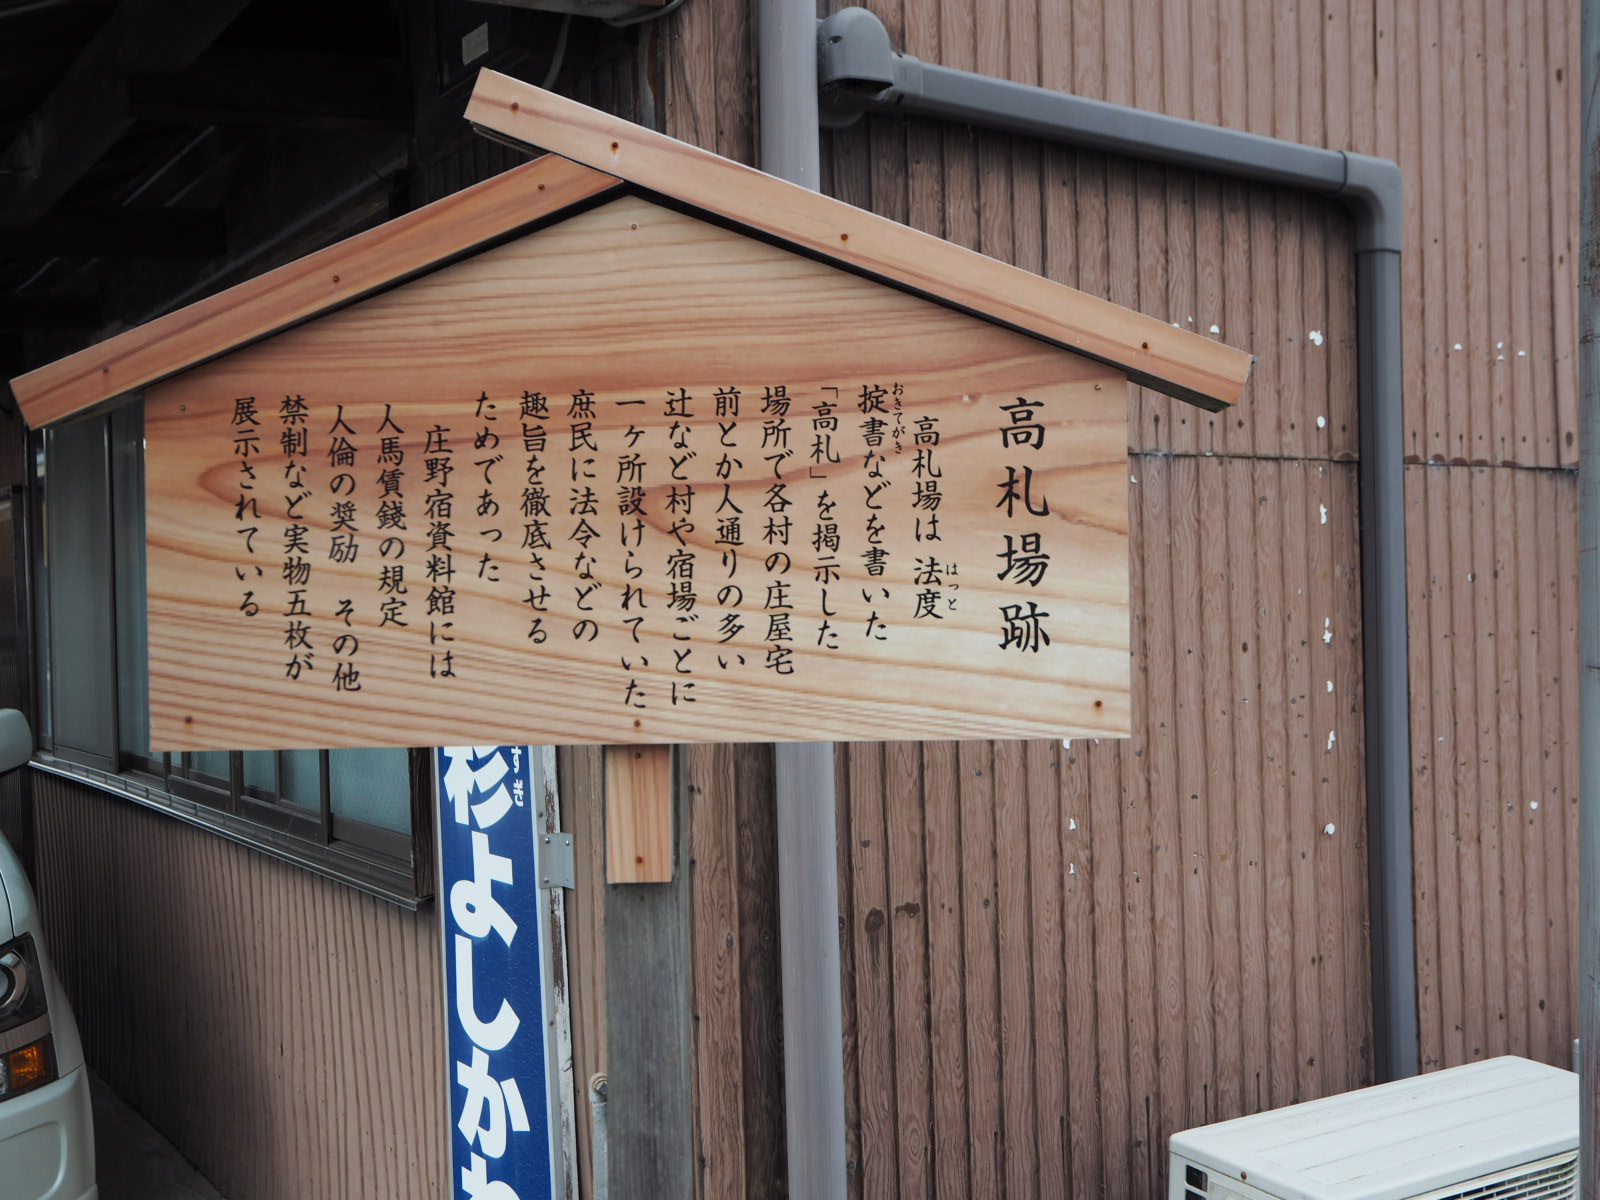 高札場跡
高札場は 法度
はっと
掟書などを書いた
おきてがき
「高札」を掲示した
場所で各村の庄屋宅
前とか人通りの多い
辻など村や宿場ごとに
一ヶ所設けられていた
庶民に法令などの
趣旨を徹底させる
ためであった
庄野宿資料館には
人馬賃銭の規定
人倫の奨励 その他
禁制など実物五枚が
展示されている
杉よしか
すぎ